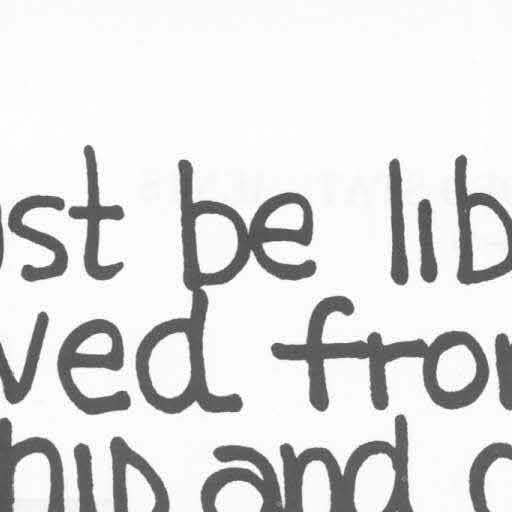 ust be lib
ved from
hip and